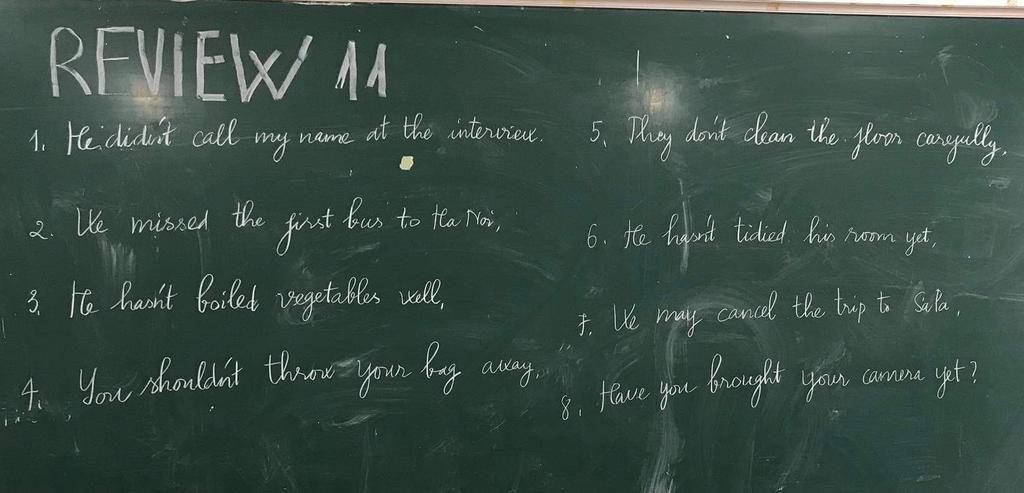 REVIEW 11
1. He didn't call my name at the interview.
2. We missed the first bus to Ha Noi,
3. He hasn't boiled vegetables well,
4. You shouldn't throw your bag away.
5. They don't clean the floor carefully,
6. He hasn't tidied his room yet,
7. We may cancel the trip to SaPa,
8. Have you brought your camera yet?